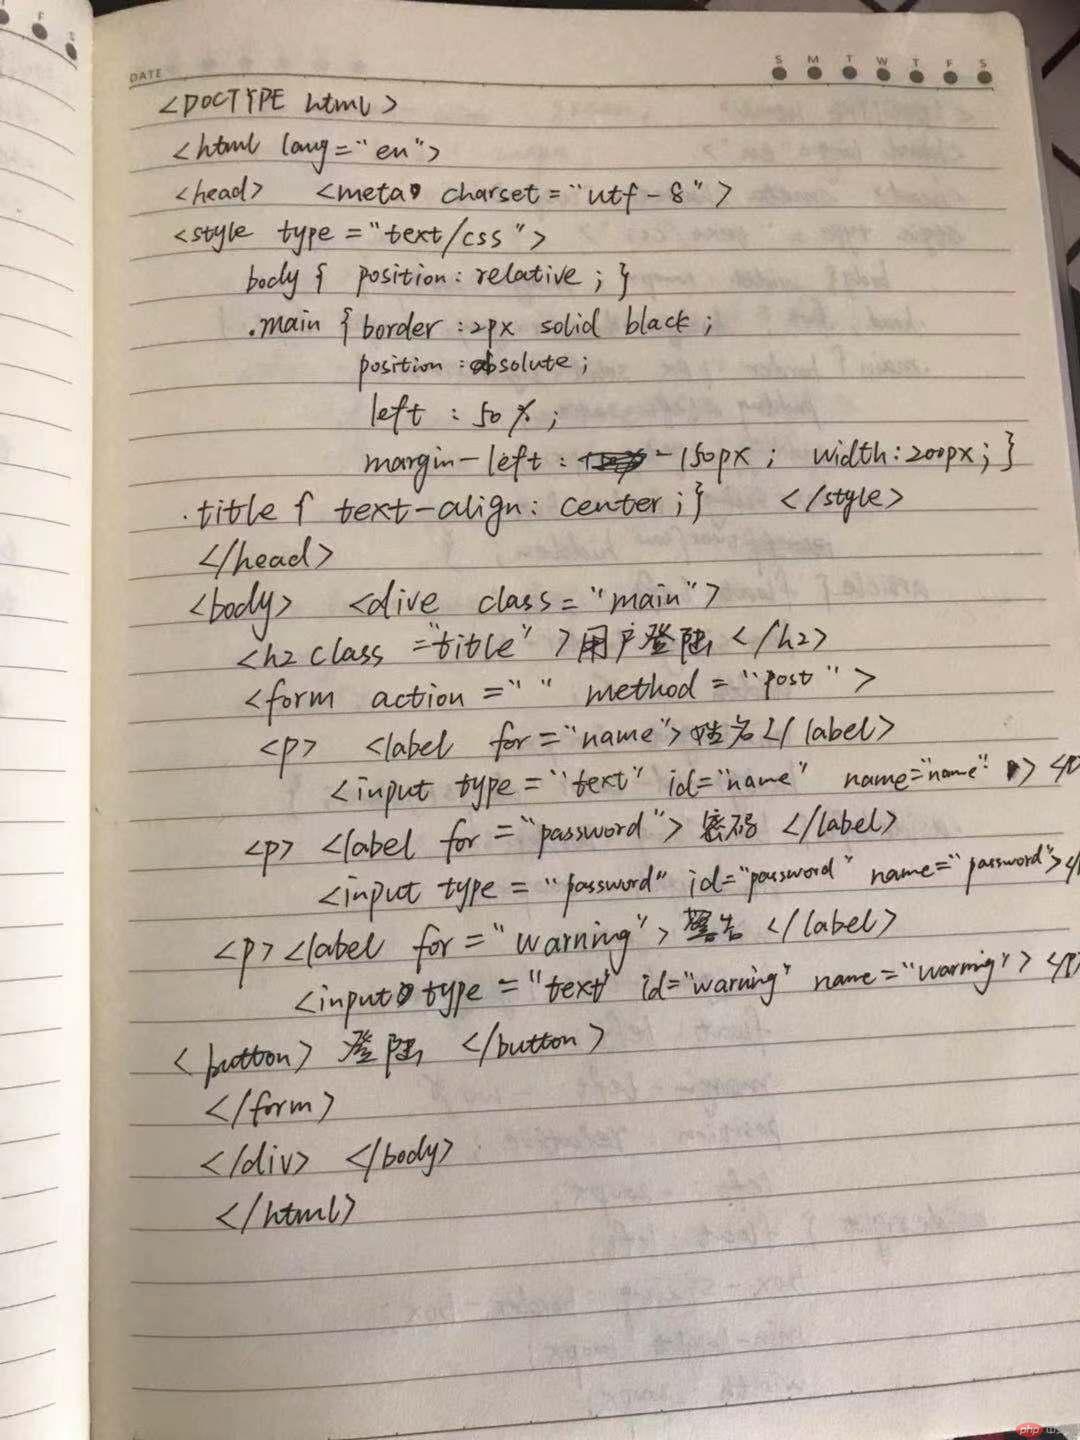 DATE
S M T W T F S
<DOCTYPE html>
<html lang="en">
<head> <meta charset="utf-8">
<style type="text/css">
body { position: relative; }
.main { border: 2px solid black;
position: absolute;
left : 50%;
margin-left: -150px; width: 200px; }
.title { text-align: center; } </style>
</head>
<body> <dive class="main">
<h2 class="title">用户登陆</h2>
<form action=" " method="post">
<p> <label for="name">姓名</label>
<input type="text" id="name" name="name">
<p> <label for="password">密码</label>
<input type="password" id="password" name="password"></
<p><label for="warning">警告</label>
<input type="text" id="warning" name="warning">
<button> 登陆 </button>
</form>
</div> </body>
</html>
php